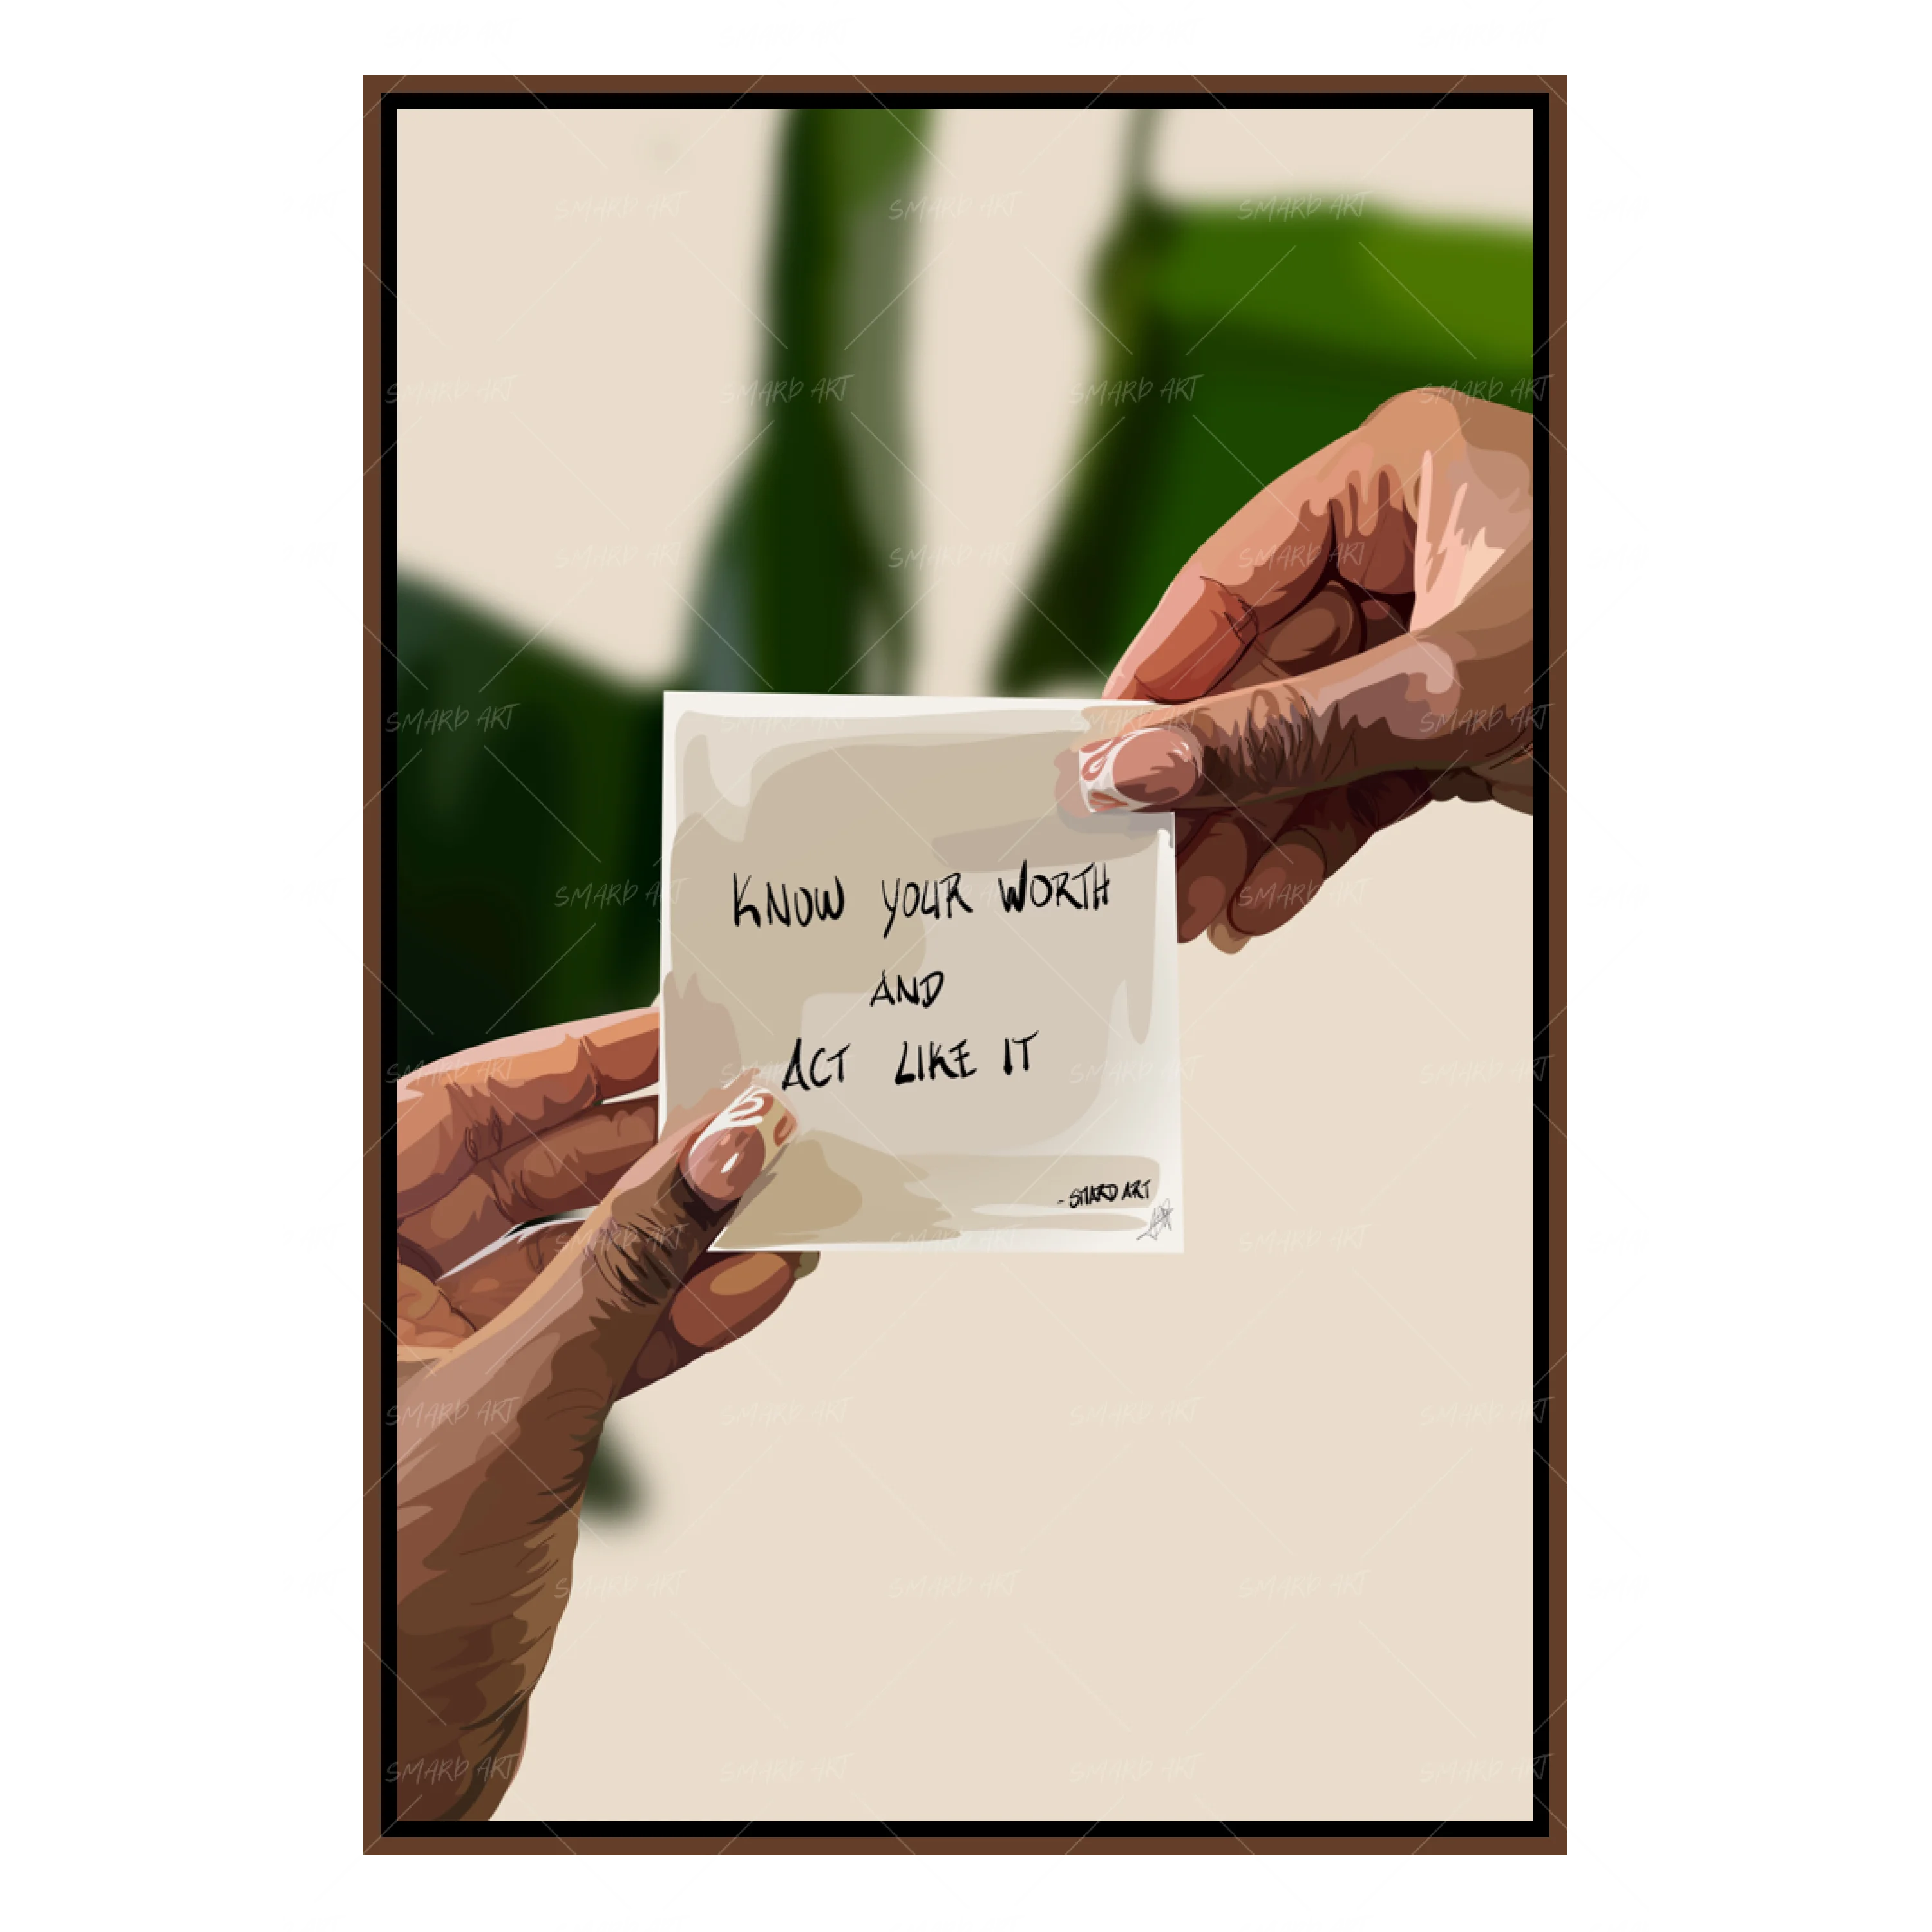 KNOW YOUR WORTH
AND
ACT LIKE IT
- SMARD ART